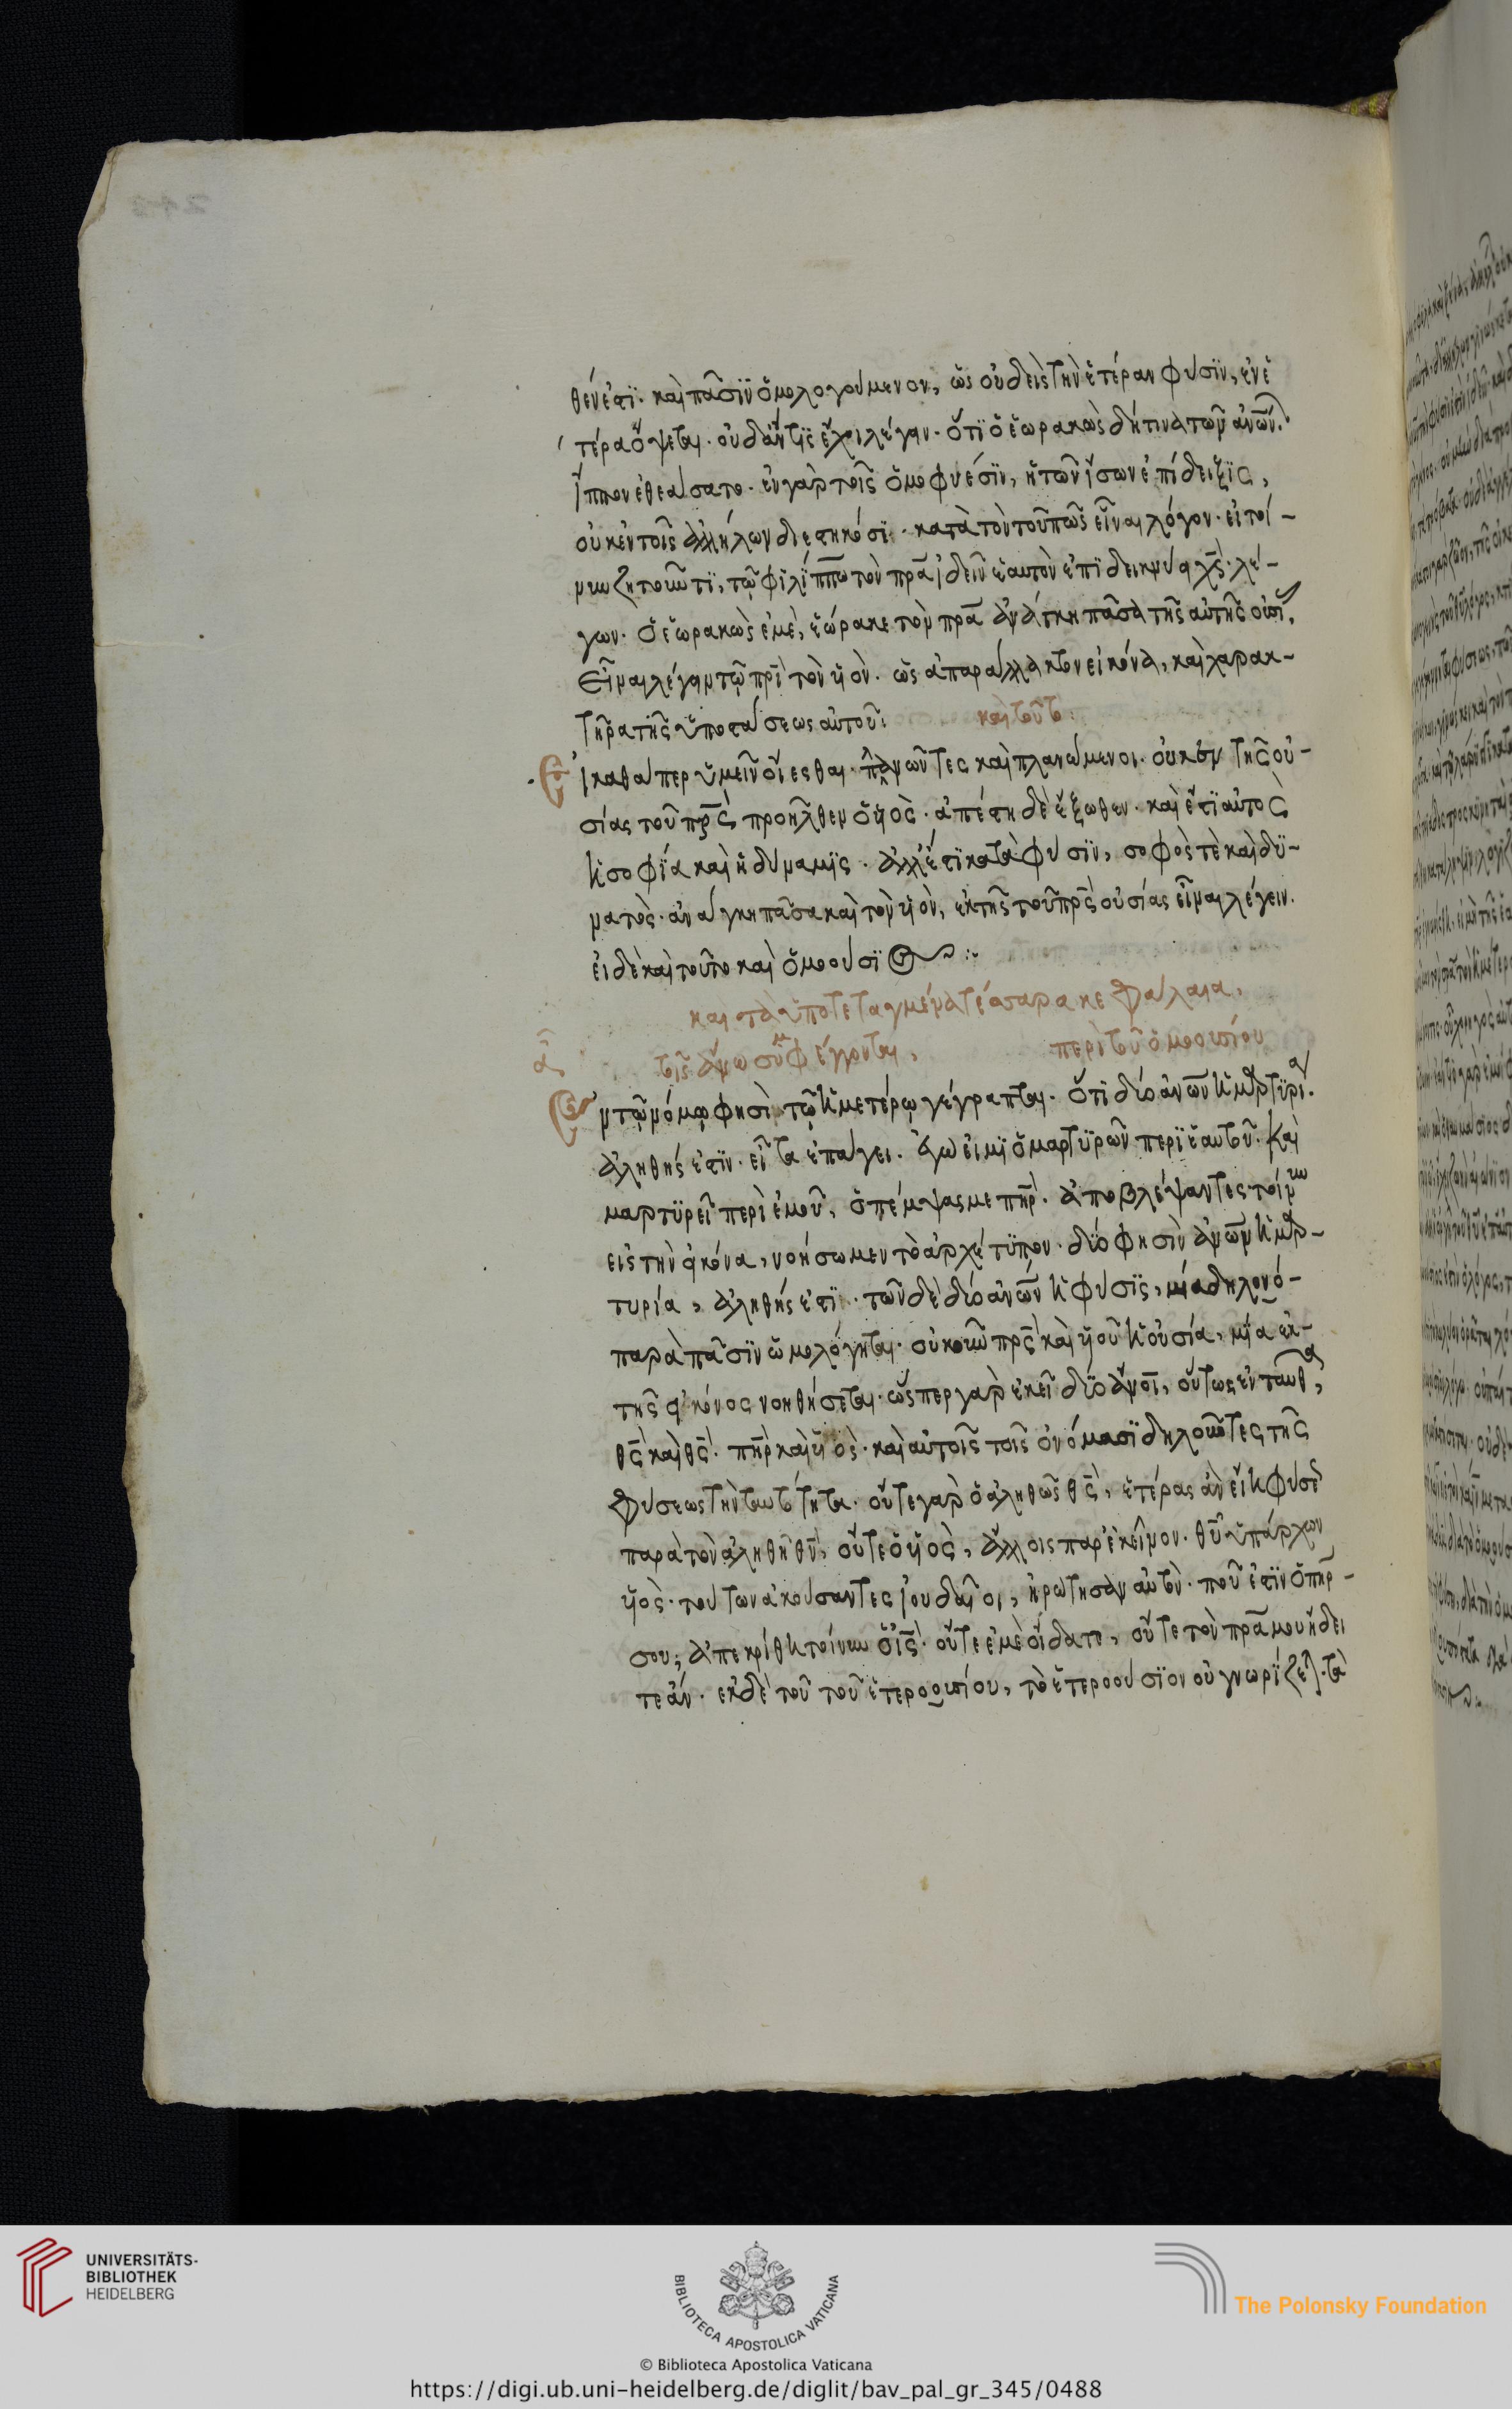 θέν ἐστϊ· καὶ πᾶσϊν ὁμολογούμενον, ὡς οὐδεὶς τὴν ἑτέραν φύσϊν, ἐν ἑ
τέρα ὄψεται· οὐδ' ἄν τϊς ἔχοι λέγειν· ὅτϊ ὁ ἑωρακὼς δή τινα τῶν ἀνων.
ἵππον ἐθεάσατο· ἐν γὰρ τοῖς ὁμοφυέσϊν, ἡ τῶν ἴσων ἐπίδειξϊς,
οὐκ ἐν τοῖς ἀλλήλων διεστηκόσϊ· κατὰ τὸν τοῦ πῶς εἶναι λόγον· εἰ τοί-
νυν ζητοῦντϊ, τῷ φϊλίππω τὸν πρα ἰδεῖν ἑαυτὸν ἐπϊδείκνυσι χς· λέ-
γων· ὁ ἑωρακὼς ἐμὲ, ἑώρακε τὸν πρα ἀνάγκη πᾶσα τῆς αὐτῆς οὐσί.
εἶναι λέγειν τῷ πρι τὸν υἱὸν· ὡς ἀπαράλλακτον εἰκόνα, καὶ χαρακ-
τῆρα τῆς ὑποστάσεως αὐτοῦ: καὶ τοῦτο:
Εἰ καθάπερ ὑμεῖν οἴεσθαι· πλανῶντες καὶ πλανώμενοι· οὐκ ἐκ τῆς οὐ-
σίας τοῦ πρς προῆλθεν ὁ υἱὸς· ἀπέστη δὲ ἔξωθεν· καὶ ἔστϊ αὐτὸς
ἡ σοφία καὶ ἡ δύναμϊς· ἀλλ' ἔστϊ κατὰ φύσϊν, σοφὸς τὲ καὶ δϋ-
νατὸς· ἀνάγκη πᾶσα καὶ τὸν υἱὸν, ἐκ τῆς τοῦ πρς οὐσίας εἶναι λέγειν.
εἰ δὲ καὶ τοῦτο καὶ ὁμοούσϊος:
καὶ τὰ ὑποτεταγμένα τέσσαρα κεφάλαια,
α τοῖς ἄνω συμφέρονται, περὶ τοῦ ὁμοουσίου
Ἐν τῷ νόμῳ φησὶ τῷ ἡμετέρῳ γέγραπται· ὅτϊ δύο ἀνων ἡ μαρτϋρία
ἀληθής ἐστϊν· εἶτα ἐπάγει· ἐγὼ εἰμϊ ὁ μαρτϋρῶν περϊ ἑαυτοῦ· καὶ
μαρτϋρεῖ περὶ ἐμοῦ, ὁ πέμψας με πηρ· ἀποβλέψαντες τοίνυν
εἰς τὴν εἰκόνα, νοήσωμεν τὸ ἀρχέτϋπον· δύο φησὶν ἀνων ἡ μαρ-
τυρία, ἀληθής ἐστϊ· τῶν δὲ δύο ἀνων ἡ φύσϊς, μία δηλονό-
παρὰ πᾶσϊν ὡμολόγηται· οὐκοῦν πρς καὶ υἱοῦ ἡ οὐσία, μία ἐκ-
τῆς εἰκόνος νοηθήσεται· ὥσπερ γὰρ ἐκεῖ δύο ἄνοι, οὕτως ἐνταῦθα,
θς καὶ θς· πηρ καὶ υἱὸς· καὶ αὐτοῖς τοῖς ὀνόμασϊ δηλοῦντες τῆς
φύσεως τὴν ταυτότητα· οὔτε γὰρ ὁ ἀληθῶς θς, ἑτέρας ἂν εἴη φύσε
παρὰ τὸν ἀληθῆ θν, οὔτε ὁ υἱὸς, ἄλλοις παρ' ἐκεῖνον· θυ ὑπάρχων
υἱὸς· τούτων ἀκούσαντες ἰουδαῖοι, ἠρώτησαν αὐτὸν· ποῦ ἐστϊν ὁ πηρ-
σου; ἀπεκρίθη τοίνυν ὁ ις· οὔτε ἐμὲ οἴδατε, οὔτε τὸν πρα μου ᾔδει
τε ἄν· ἐκ δὲ τοῦ τοῦ ἑτεροουσίου, τὸ ἑτεροούσϊον οὐ γνωρϊζε· τὰ
UNIVERSITÄTS-
BIBLIOTHEK
HEIDELBERG
BIBLIOTECA APOSTOLICA VATICANA
The Polonsky Foundation
© Biblioteca Apostolica Vaticana
https://digi.ub.uni-heidelberg.de/diglit/bav_pal_gr_345/0488